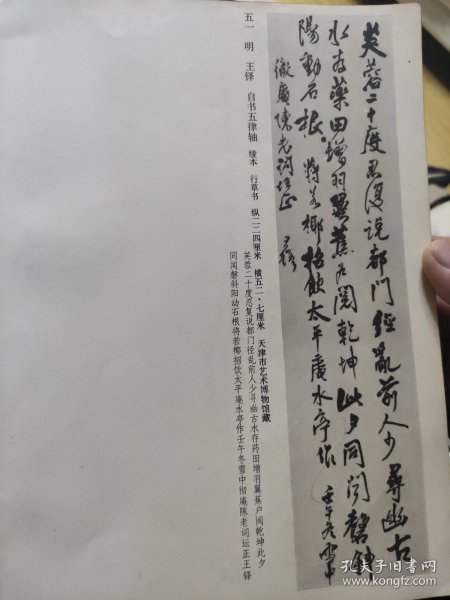 芙蓉二十度忍復说都門經亂前人少尋幽古
水存藥田增羽翼蕉戶閲乾坤此夕同闻磬斜
陽動石根將若椰招飲太平庵水亭作壬午冬雪中
徹庵陳老詞坛正王鐸
五一 明 王铎 自书五律轴 绫本 行草书 纵二二四厘米 横五二·七厘米 天津市艺术博物馆藏
芙蓉二十度忍复说都门径乱前人少寻幽古水存药田增羽翼蕉户阅乾坤此夕
同闻磬斜阳动石根将若椰招饮太平庵水亭作壬午冬雪中彻庵陈老词坛正王铎
孔夫子旧书网
www.kongfz.com